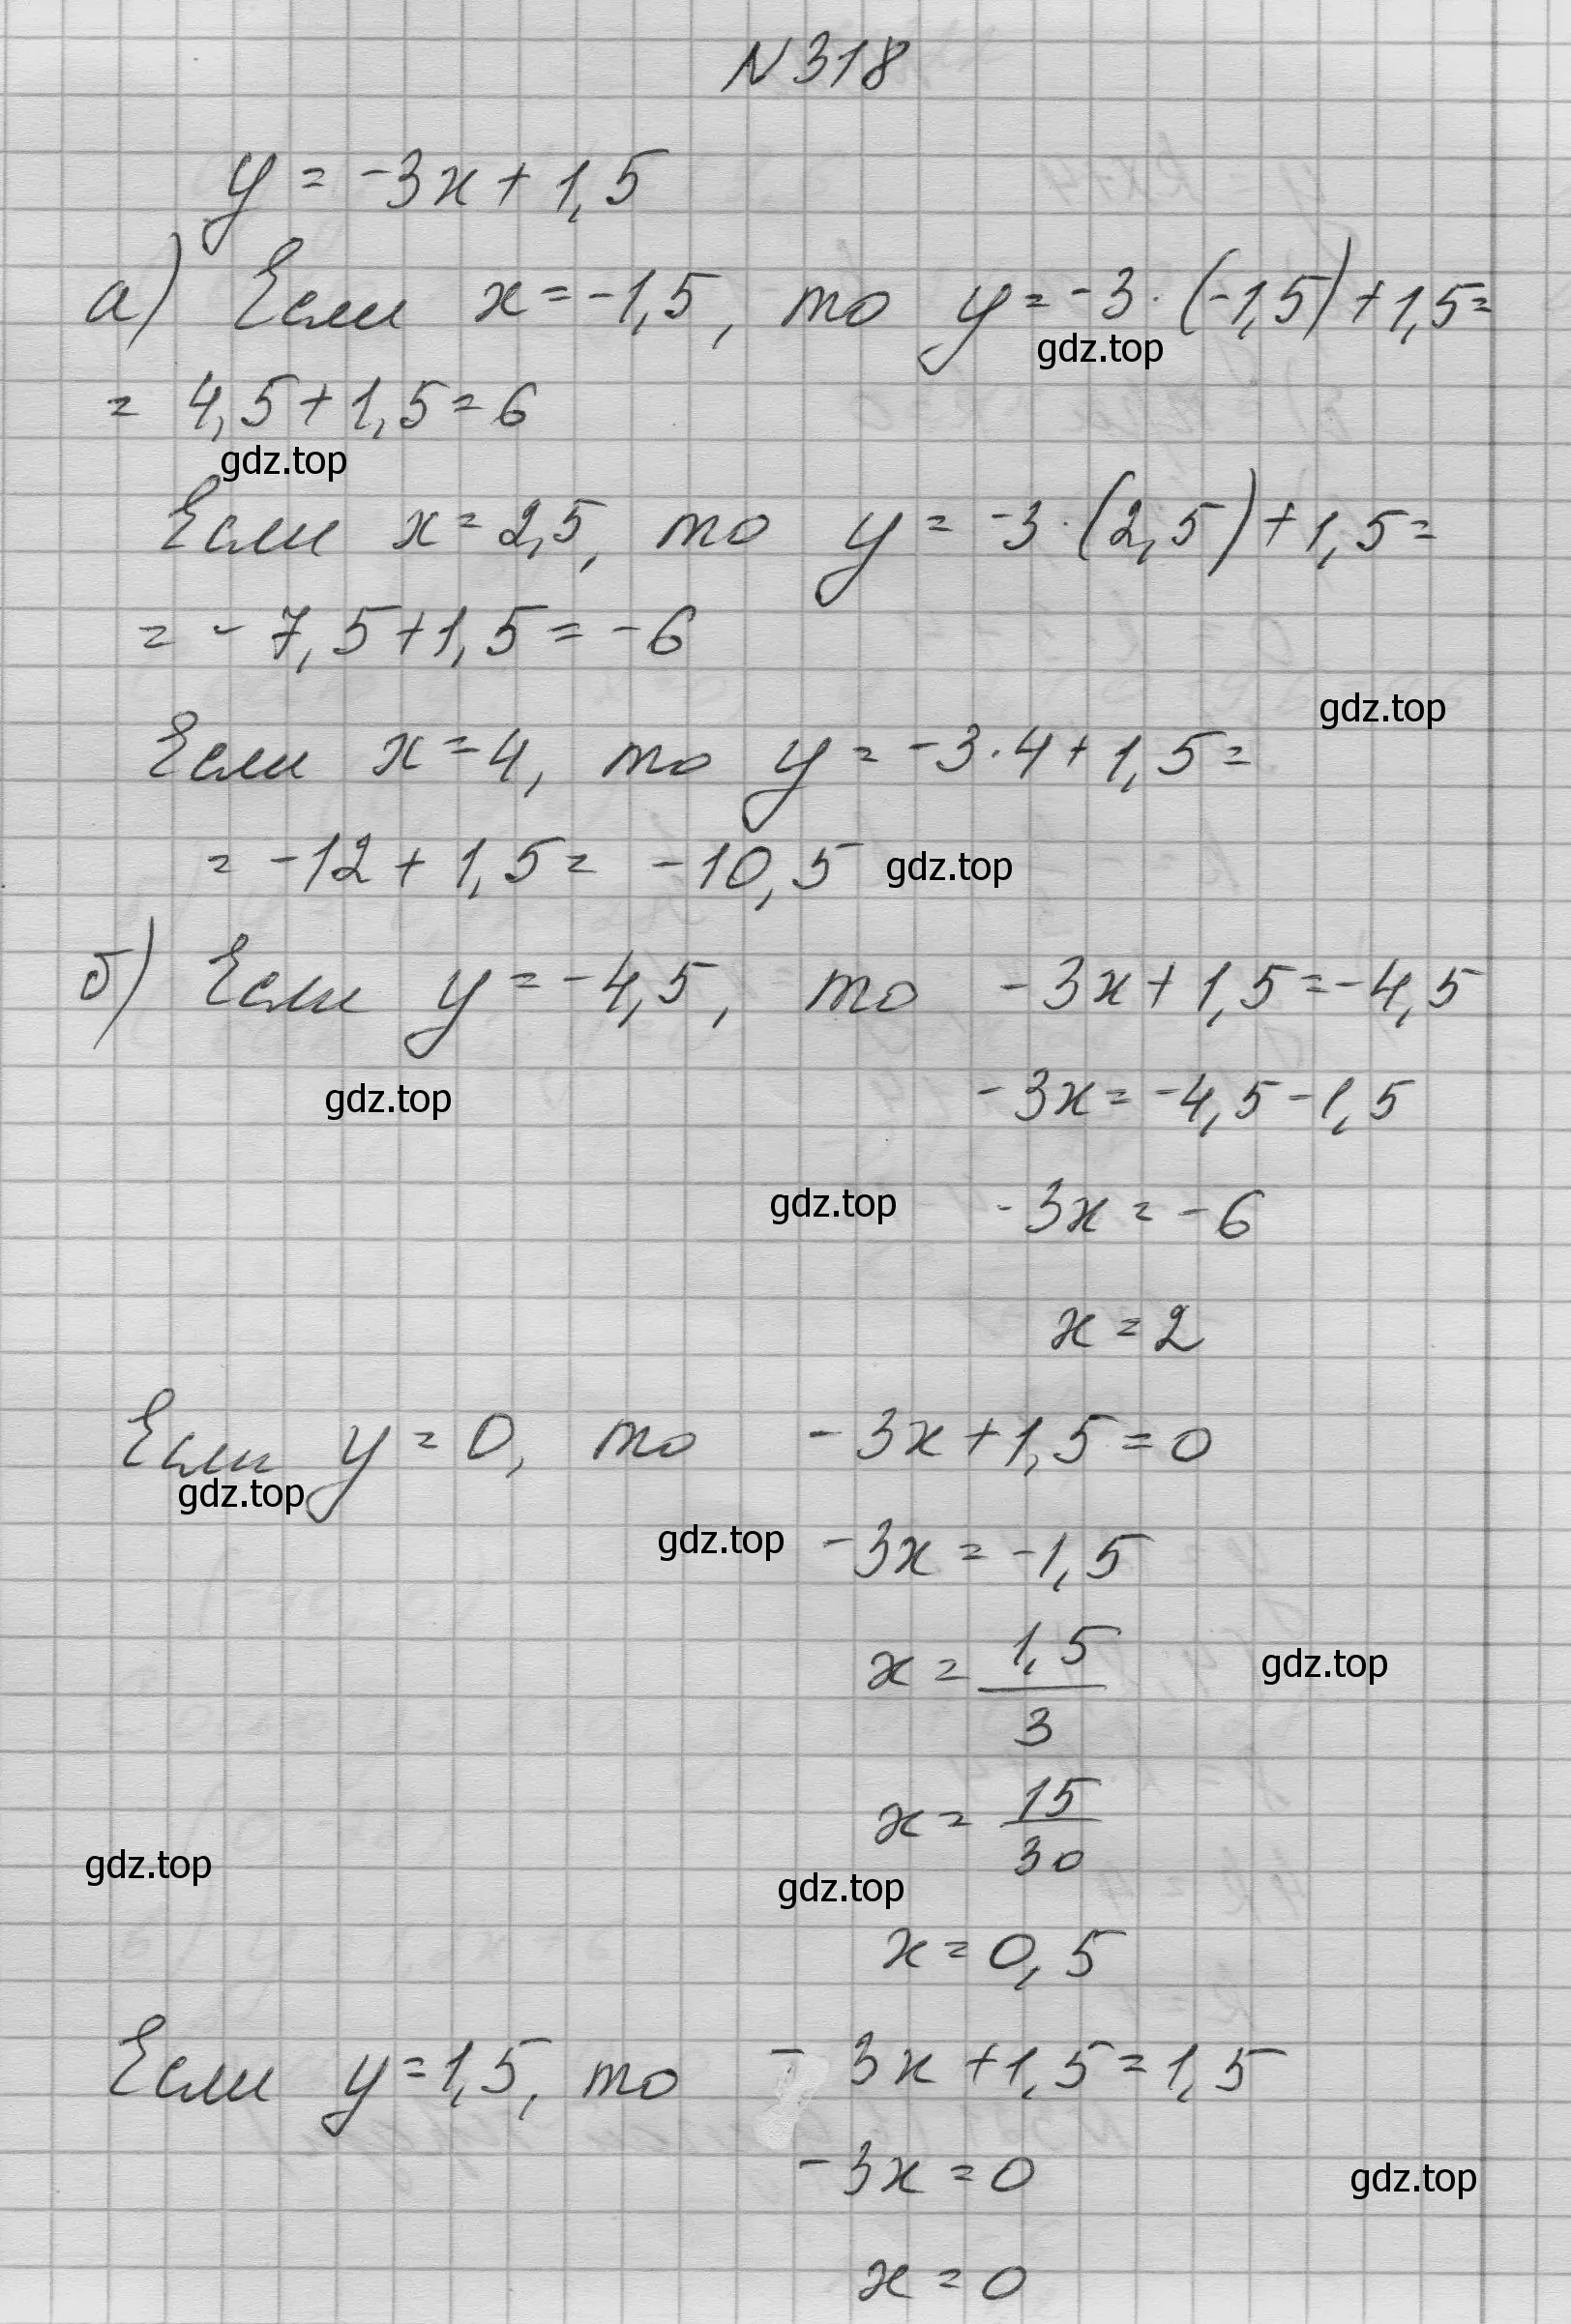 N 318
y = -3x + 1,5
а) Если x = -1,5, то y = -3 · (-1,5) + 1,5 =
gdz.top
= 4,5 + 1,5 = 6
gdz.top
Если x = 2,5, то y = -3 · (2,5) + 1,5 =
= -7,5 + 1,5 = -6
gdz.top
Если x = 4, то y = -3 · 4 + 1,5 =
= -12 + 1,5 = -10,5 gdz.top
б) Если y = -4,5, то -3x + 1,5 = -4,5
gdz.top -3x = -4,5 - 1,5
gdz.top -3x = -6
x = 2
Если y = 0, то -3x + 1,5 = 0
gdz.top
gdz.top -3x = -1,5
x = 1,5/3 gdz.top
x = 15/30
gdz.top gdz.top
x = 0,5
Если y = 1,5, то -3x + 1,5 = 1,5
-3x = 0 gdz.top
x = 0